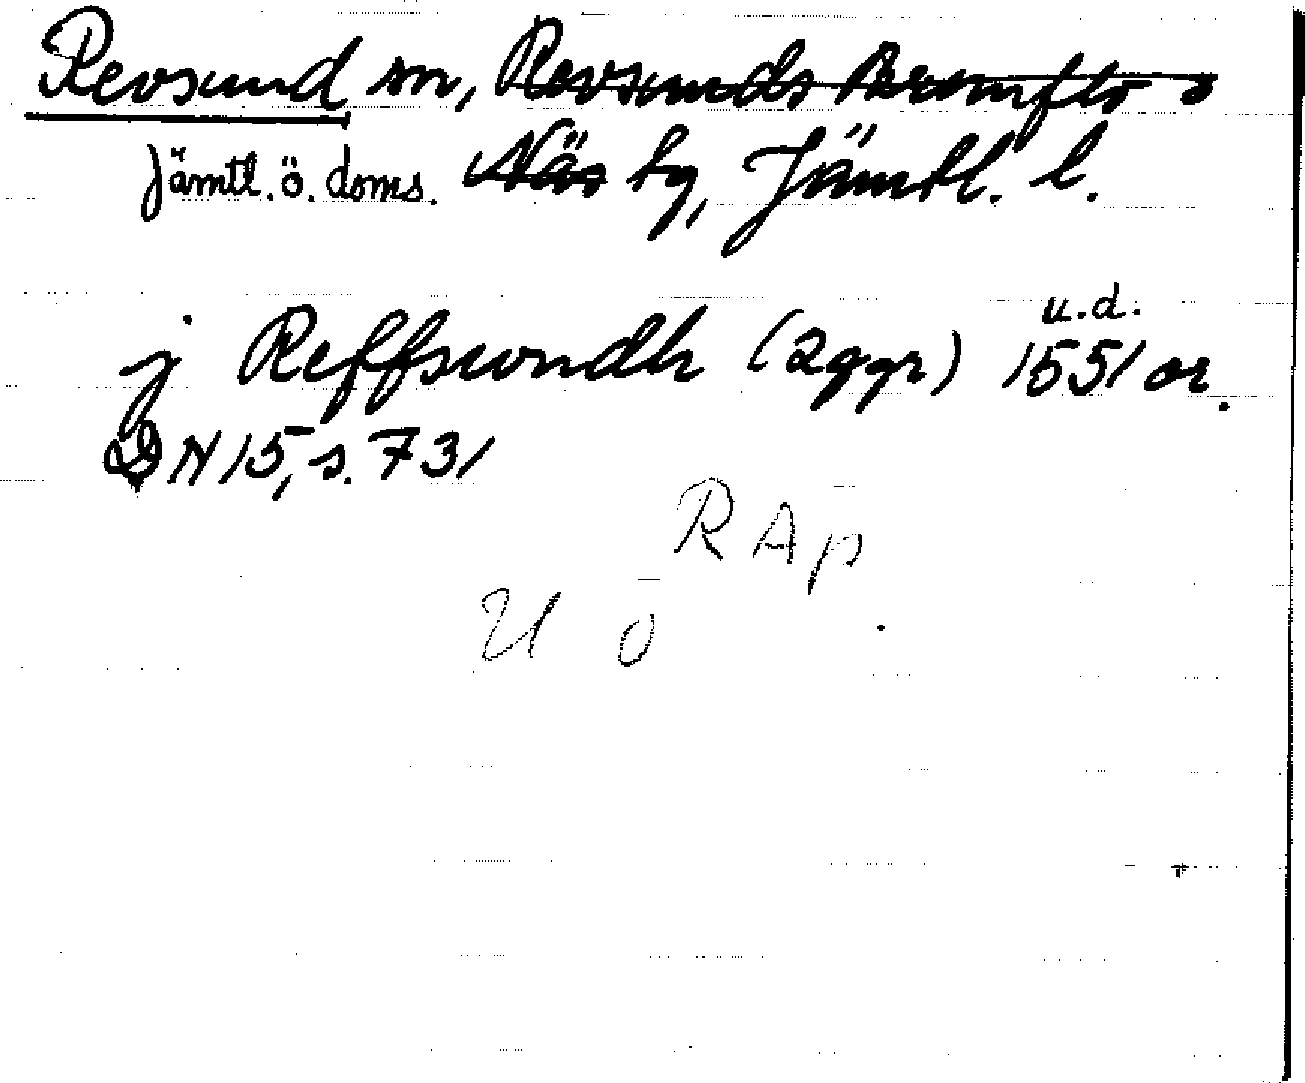 Revsund sn, Revsunds Brunflo o
Jämtl. ö. doms. Näs tg, Jämtl. l.
j Reffswndh (2ggr) 1551 u.d. or.
DN 15, s. 731
RAp
U o